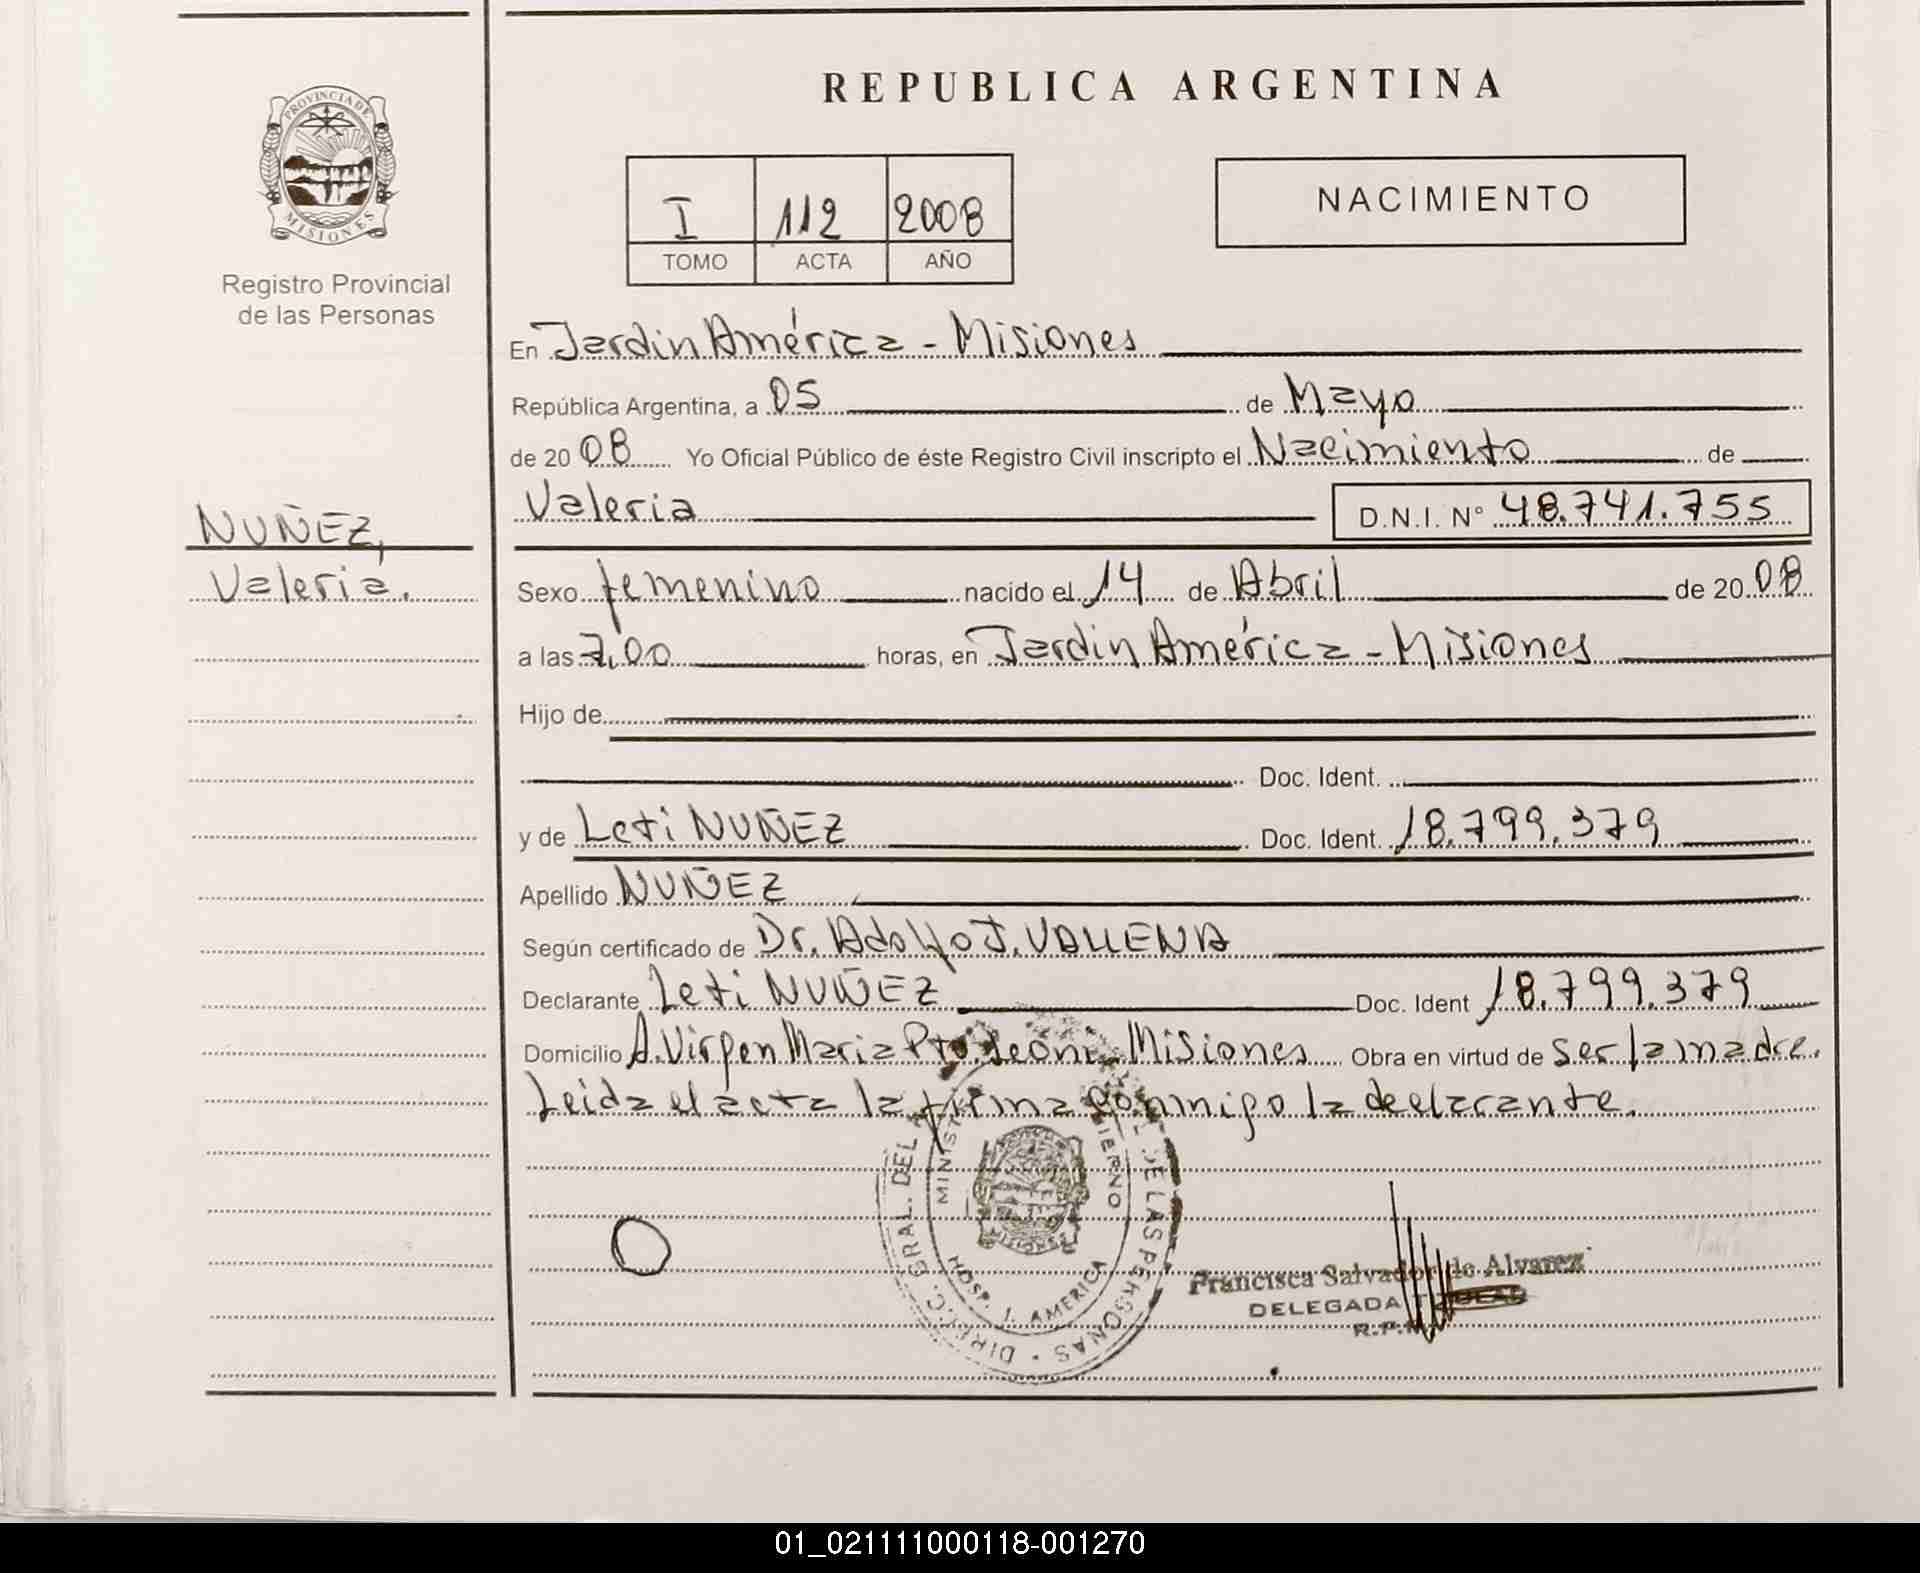 PROVINCIA DE
MISIONES
Registro Provincial
de las Personas
NUÑEZ,
Valeria.
REPUBLICA ARGENTINA
I 112 2008
TOMO ACTA AÑO
NACIMIENTO
En Jardin América - Misiones
República Argentina, a 05 de Mayo
de 20 08 Yo Oficial Público de éste Registro Civil inscripto el Nacimiento de
Valeria D.N.I. N° 48.741.755
Sexo femenino nacido el 14 de Abril de 20 08
a las 7,00 horas, en Jardin América - Misiones
Hijo de
Doc. Ident.
y de Leti NUÑEZ Doc. Ident. 18.799.379
Apellido NUÑEZ
Según certificado de Dr. Adolfo J. VALLENA
Declarante Leti NUÑEZ Doc. Ident 18.799.379
Domicilio A. Virgen Maria Pto. Leoni - Misiones Obra en virtud de ser la madre.
Leida el acta la firma conmigo la declarante.
DIREC. GRAL. DEL DE LAS PERSONAS
HOSP. J. AMERICA
Francisca Salvador de Alvarez
DELEGADA
01_021111000118-001270